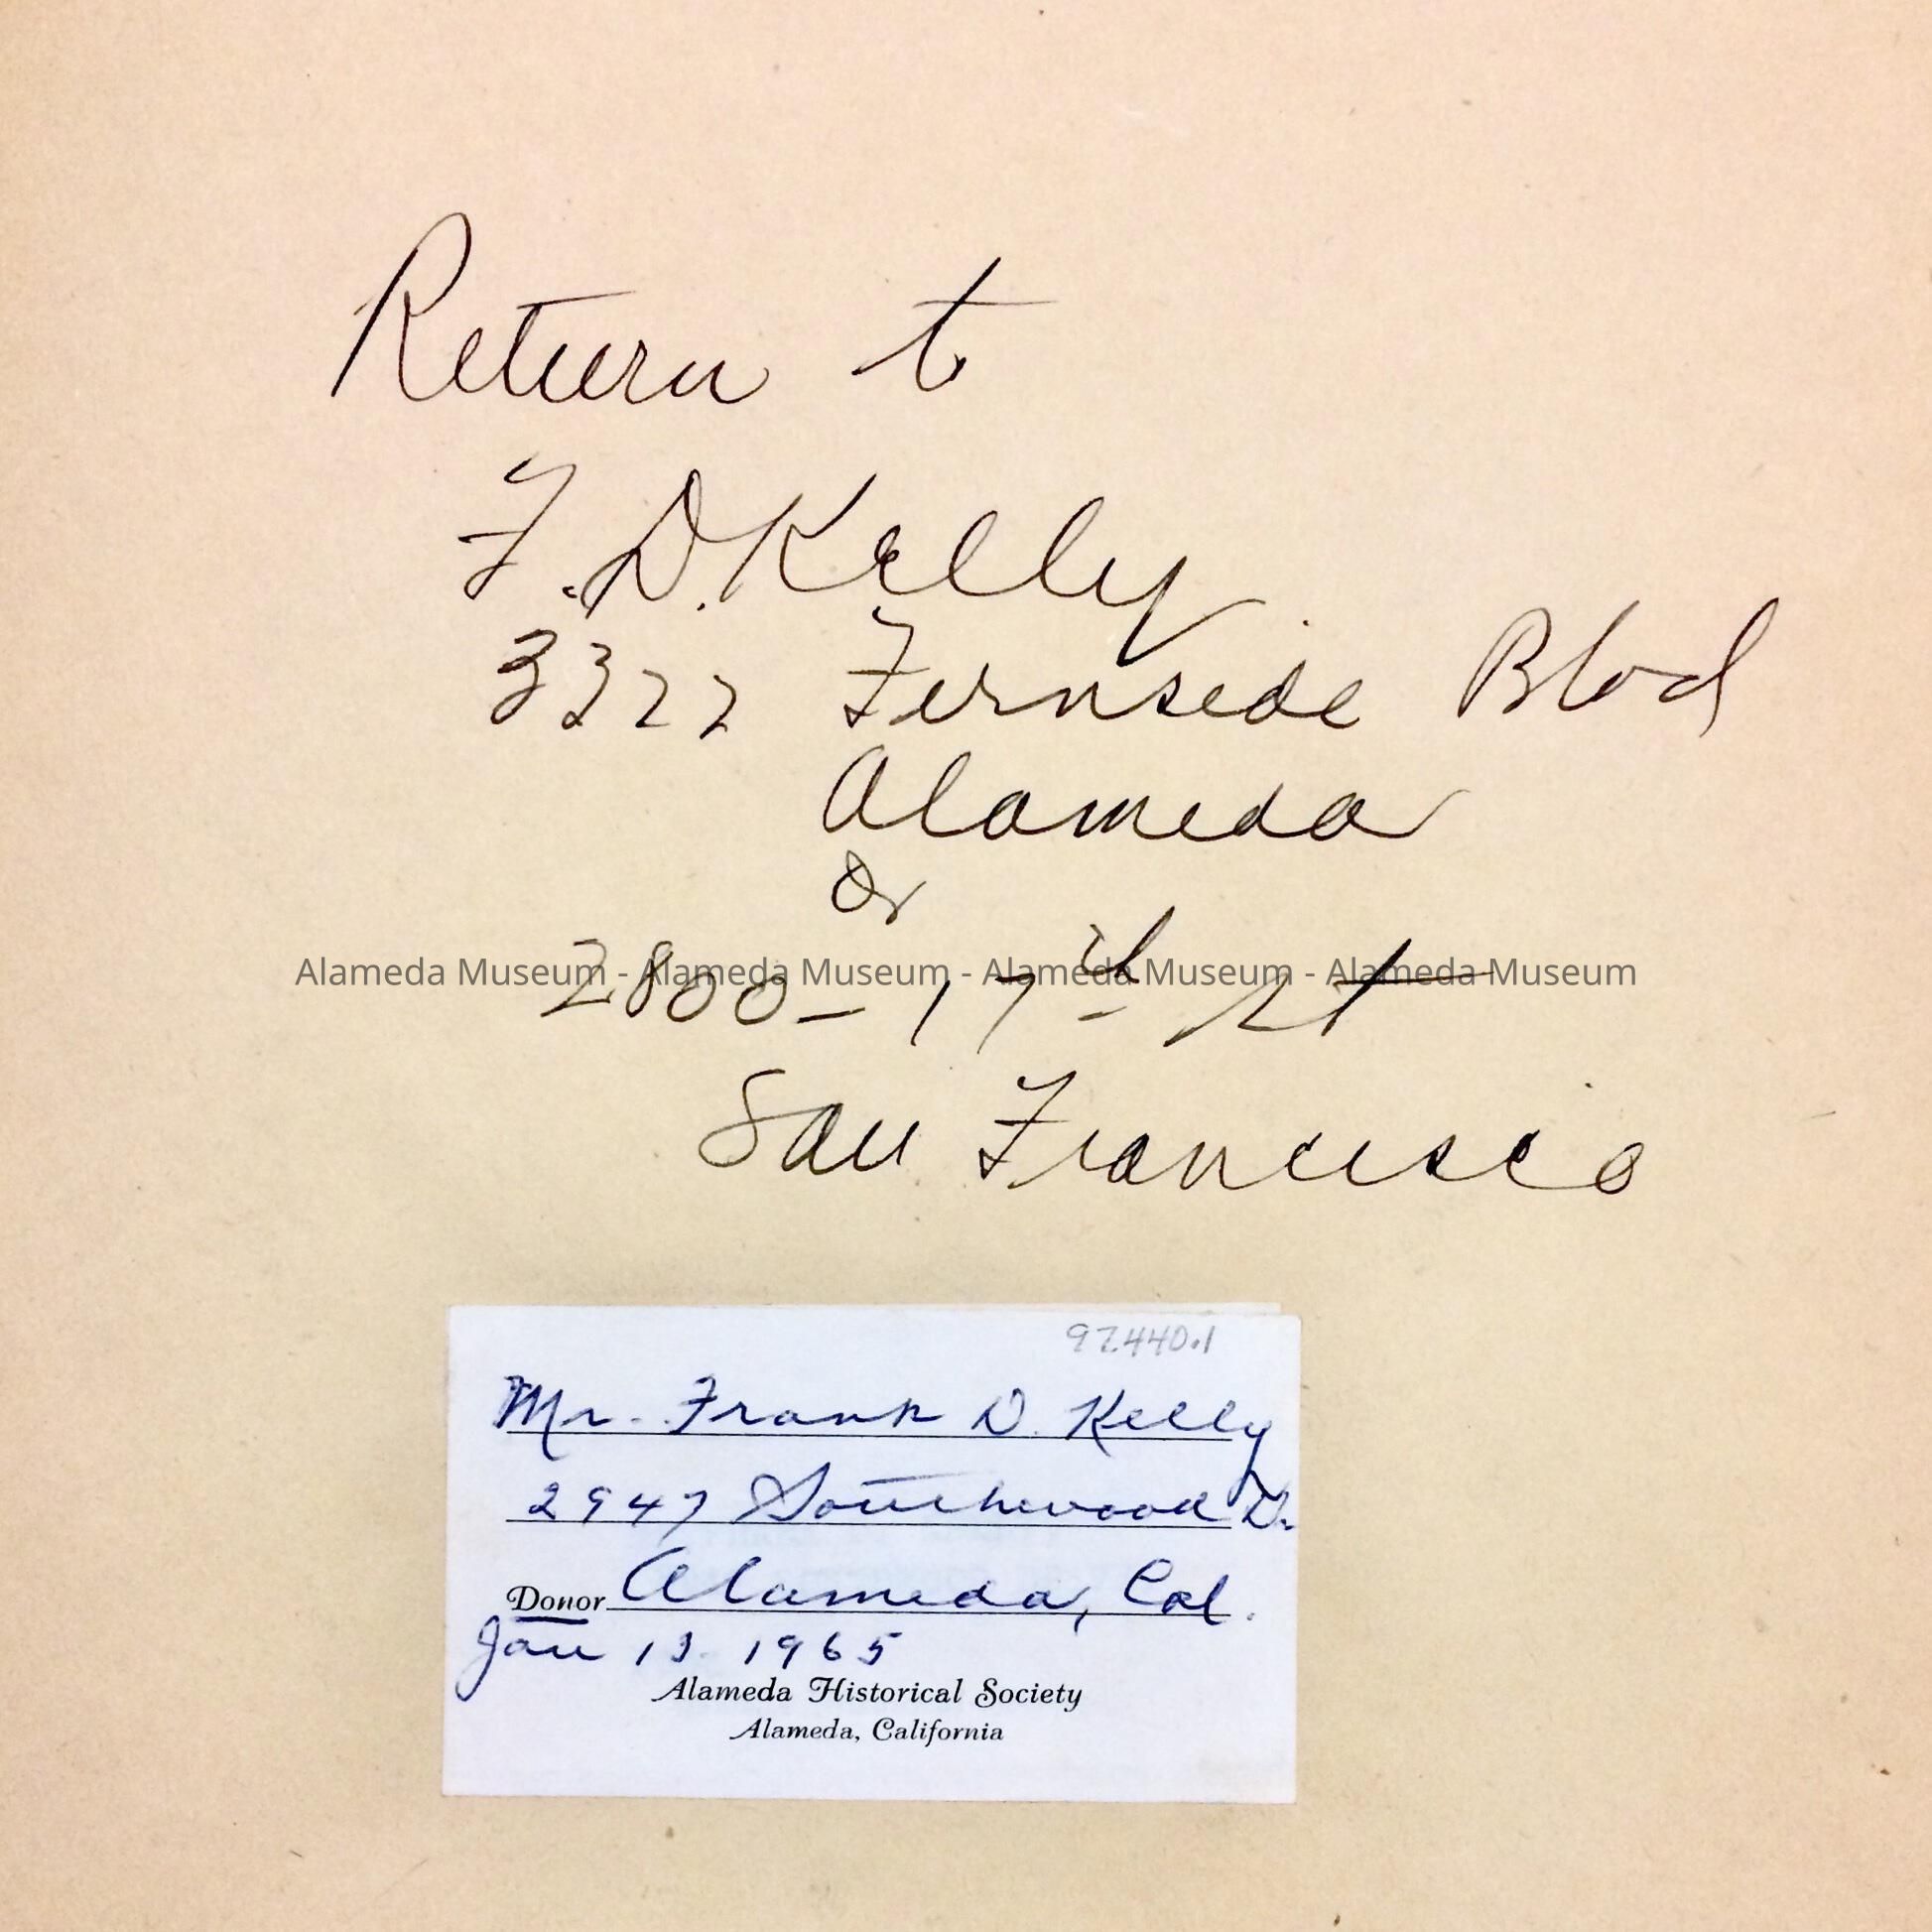 Return to
F. D. Kelly
3322 Fernside Blvd
Alameda
Or
2800 - 17th St
San Francisco
Alameda Museum - Alameda Museum - Alameda Museum - Alameda Museum
97.440.1
Mr. Frank D. Kelly
2947 Southwood D.
Donor Alameda, Cal.
Jan 13 1965
Alameda Historical Society
Alameda, California